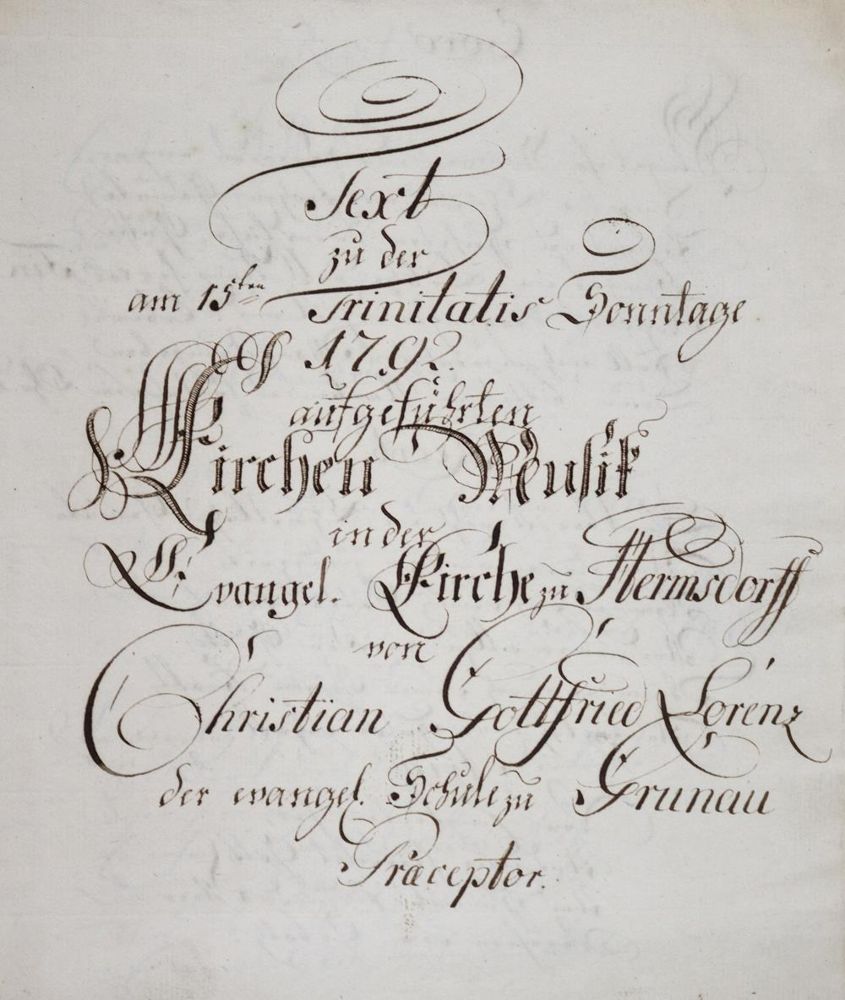 Text
zu der
am 15ten Trinitatis Sonntage
1792.
aufgeführten
Kirchen Musik
in der
Evangel. Kirche zu Hermsdorff
von
Christian Gottfried Lorenz
der evangel. Schule zu Grunau
Præceptor.